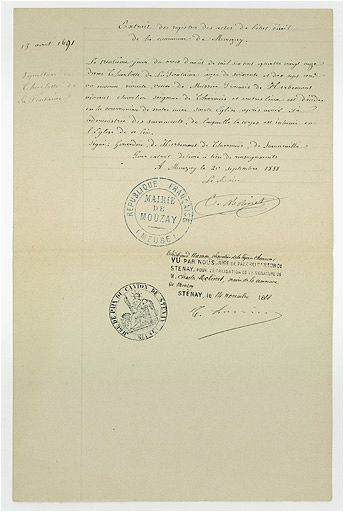 Extrait des registres des actes de l'état civil
de la commune de Mouzay.
15 août 1691
Sépulture de
Charlotte de
la Fontaine
Le treizième jour du mois d'août de mil six cent quatre vingt onze
dame Charlotte de la Fontaine, agée de soixante et dix ans
vivant chevalier, seigneur de Charmois et autres lieux, est décédée
en la communion de notre mère sainte Église, après avoir été
administrée des sacrements, de laquelle le corps est inhumé en
l'Église de ce lieu.
Signé: de Herbemont de Charmois, de
Pour extrait délivré à titre de renseignements
A Mouzay le 20 septembre 1888
Le Maire
C. Molinet
RÉPUBLIQUE FRANÇAISE
MAIRIE
DE
MOUZAY
(MEUSE)
VU PAR NOUS, JUGE DE PAIX DU CANTON DE
STENAY, POUR LÉGALISATION DE LA SIGNATURE DE
M. Charles Molinet, maire de la commune
de Mouzay
STENAY, le 14 novembre 1888
JUGE DE PAIX DU CANTON DE STENAY (MEUSE)